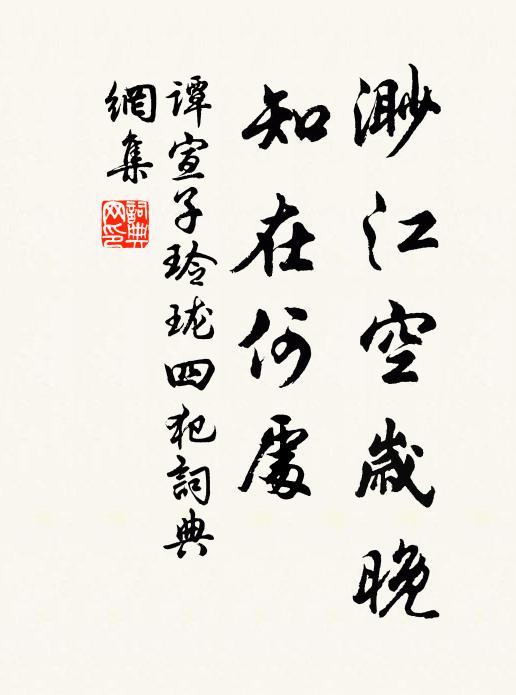 渺江空歲晚
知在何處
譚宣子玲瓏四犯詞典
網集
詞典網印